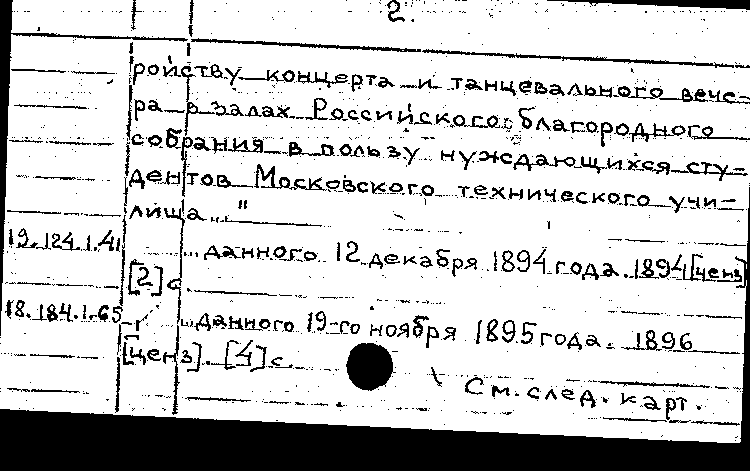 2.
ройству концерта и танцевального вече-
ра в залах Российского благородного
собрания в пользу нуждающихся сту-
дентов Московского технического учи-
лища..."
19.124.1.41 ...данного 12 декабря 1894 года. 1894 [ценз]
[2] с.
18.184.1.65 ...данного 19-го ноября 1895 года. 1896
[ценз]. [4] с.
См. след. карт.